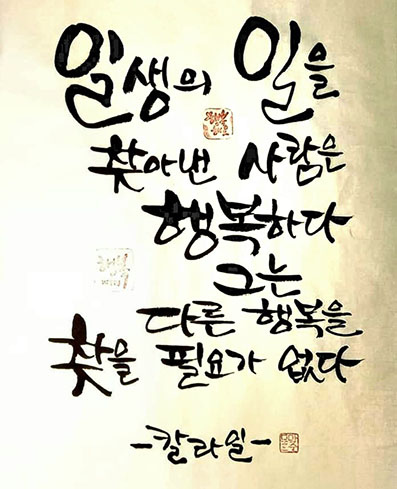 일생의 일을
찾아낸 사람은
행복하다
그는
다른 행복을
찾을 필요가 없다
-칼라일-